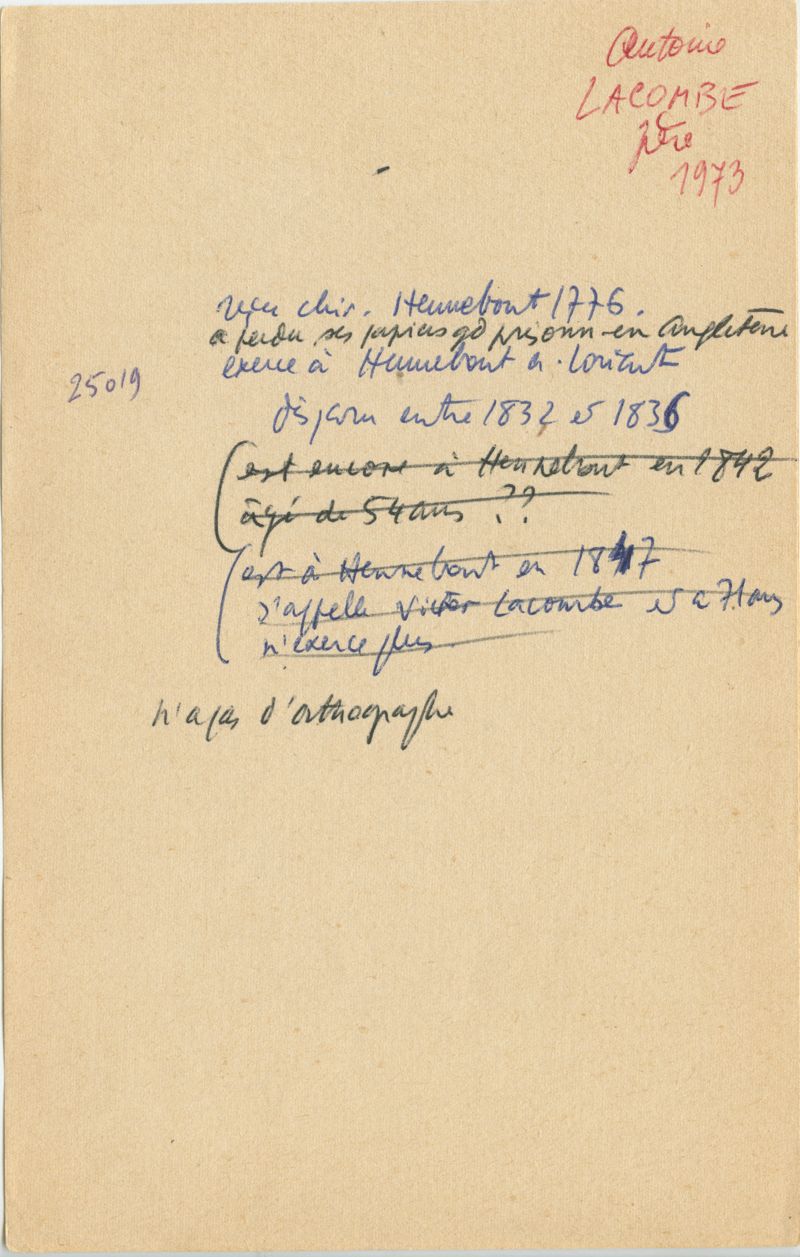 Antoine
LACOMBE
père
1973
reçu chir. Hennebont 1776.
a perdu ses papiers qd prisonn. en Angleterre
exerce à Hennebont a. Lorient
25019
disparu entre 1832 et 1836
(est encore à Hennebont en 1842
âgé de 54 ans ??
(est à Hennebont en 1847
s'appelle Victor Lacombe et a 71 ans
n'exerce plus.
n'a pas d'orthographe